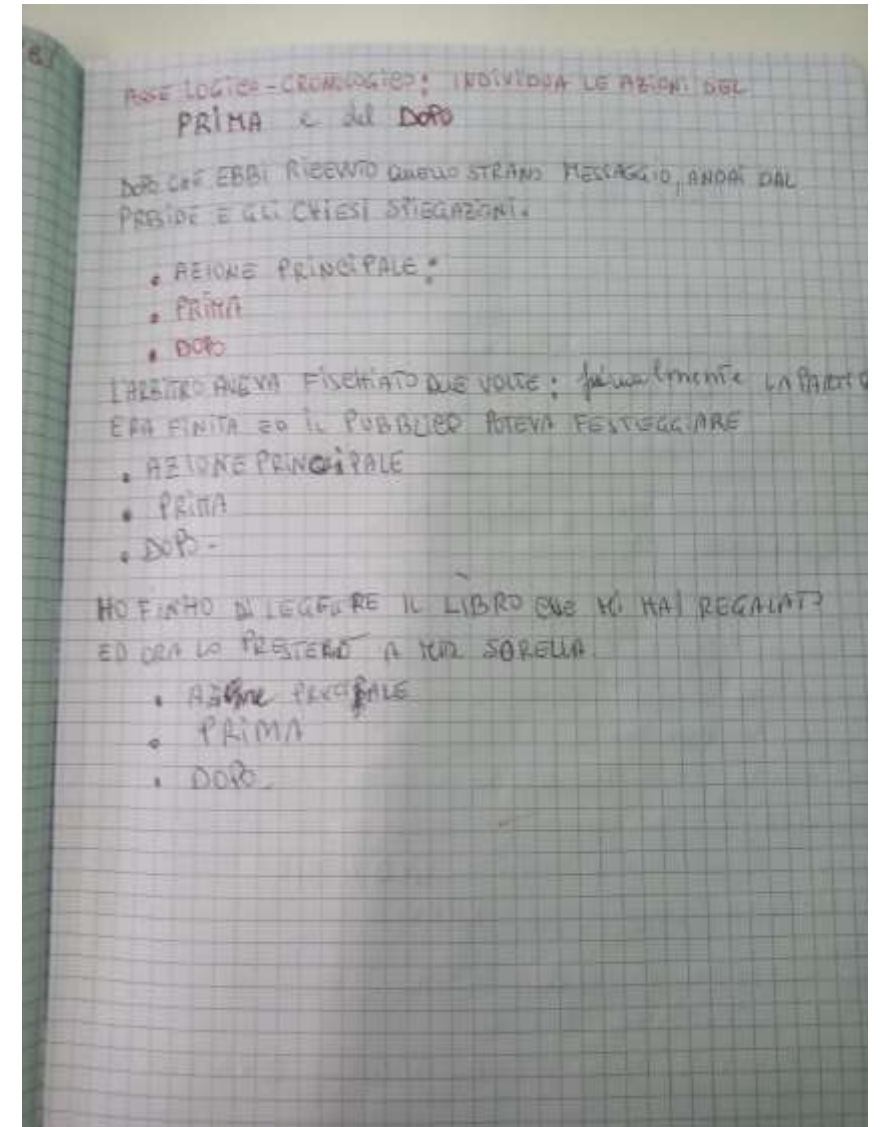 ASSE LOGICO-CRONOLOGICO: INDIVIDUA LE AZIONI DEL
PRIMA e del DOPO
DOPO CHE EBBI RICEVUTO QUELLO STRANO MESSAGGIO, ANDAI DAL
PRESIDE E GLI CHIESI SPIEGAZIONI.
• AZIONE PRINCIPALE:
• PRIMA
• DOPO
L'ARBITRO AVEVA FISCHIATO DUE VOLTE: finalmente LA PARTITA
ERA FINITA ED IL PUBBLICO POTEVA FESTEGGIARE
• AZIONE PRINCIPALE
• PRIMA
• DOPO-
HO FINITO DI LEGGERE IL LIBRO CHE MI HAI REGALATO
ED ORA LO PRESTERÒ A MIA SORELLA.
• AZIONE PRINCIPALE
• PRIMA
• DOPO-